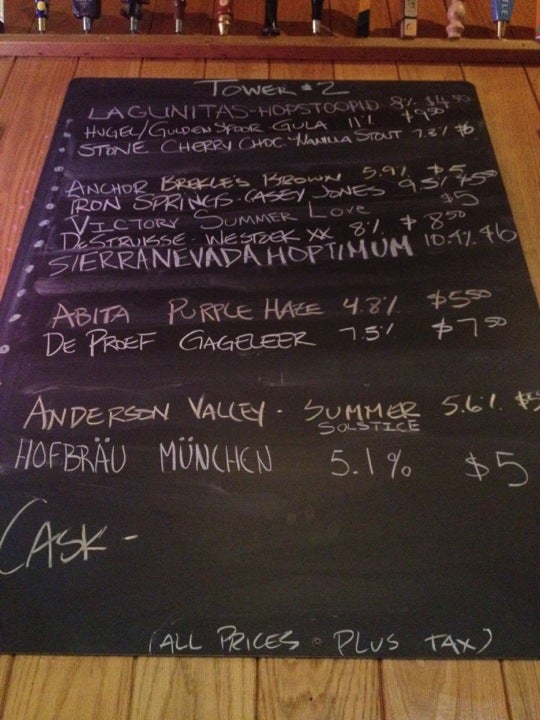 TOWER #2
LAGUNITAS-HOPSTOOPID 8% $4.50
HUGEL/GULDEN SPOOR GULA 11% $9.50
STONE CHERRY CHOC-VANILLA STOUT 7.3% $6
ANCHOR BREKLE'S BROWN 5.9% $5
IRON SPRINGS-CASEY JONES 9.5% $5.50
VICTORY SUMMER LOVE $5
DESTRUISSE-WESTOEK XX 8% $8.50
SIERRA NEVADA HOPTIMUM 10.4% $6
ABITA PURPLE HAZE 4.8% $5.50
DE PROEF GAGELEER 7.5% $7.50
ANDERSON VALLEY- SUMMER 5.6% $5
SOLSTICE
HOFBRÄU MÜNCHEN 5.1% $5
CASK-
(ALL PRICES PLUS TAX)